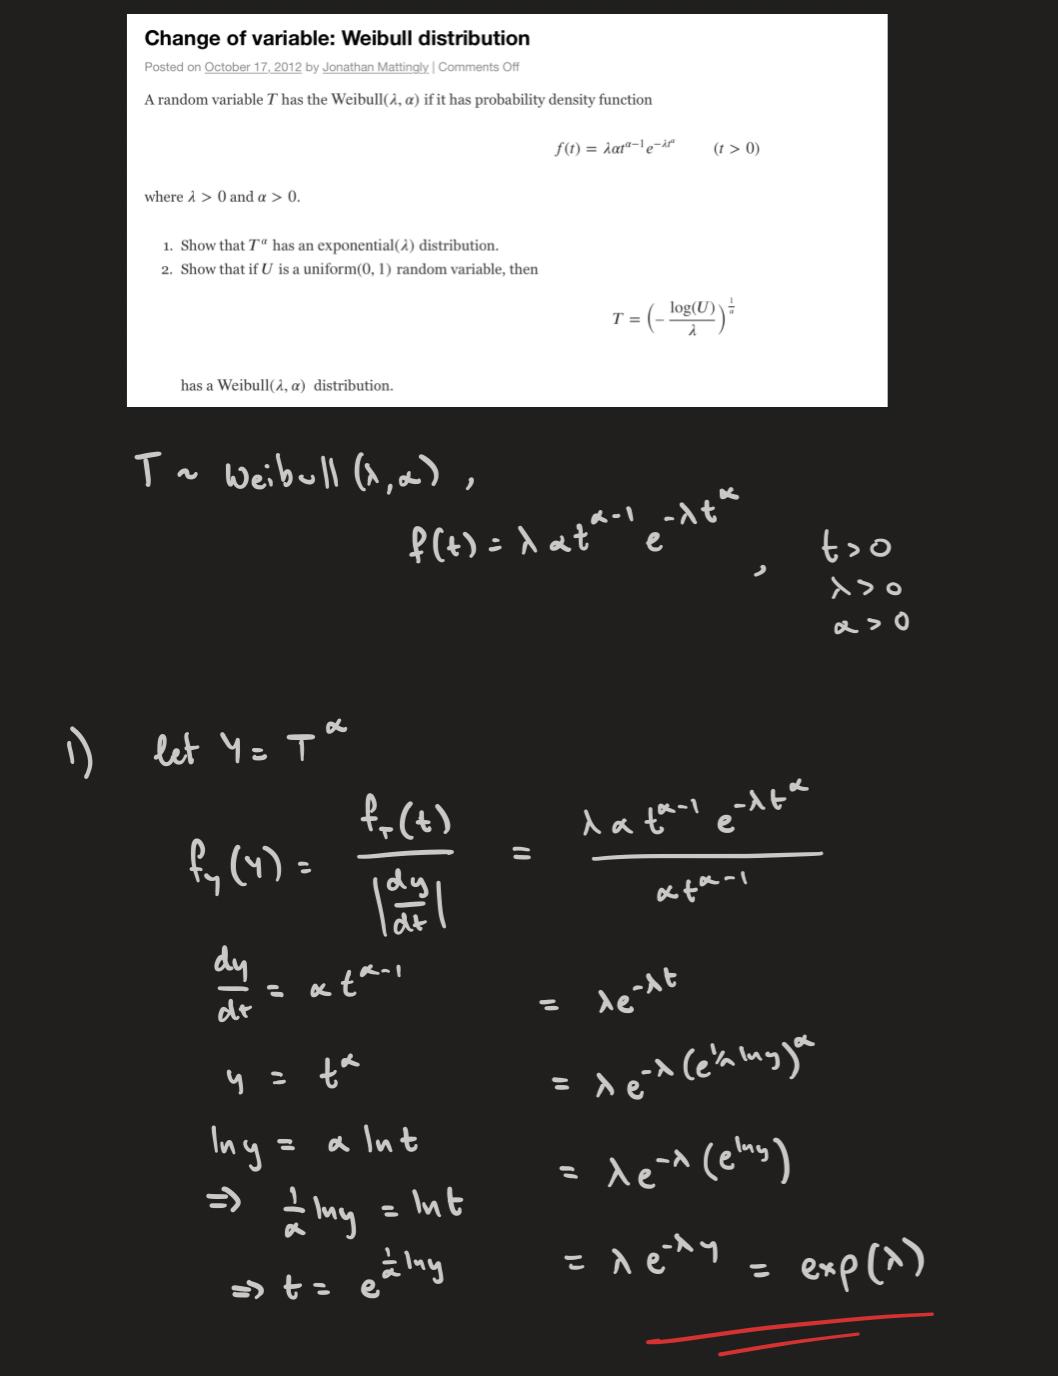 Change of variable: Weibull distribution
Posted on October 17, 2012 by Jonathan Mattingly | Comments Off
A random variable T has the Weibull(λ, α) if it has probability density function
f(t) = λαt^{α−1}e^{−λt^α} (t > 0)
where λ > 0 and α > 0.
1. Show that T^α has an exponential(λ) distribution.
2. Show that if U is a uniform(0, 1) random variable, then
T = (− log(U)/λ)^{1/α}
has a Weibull(λ, α) distribution.
T ~ Weibull (λ,α) ,
f(t) = λ αt^{α-1} e^{-λt^α} , t>0
λ>0
α>0
1) let Y = T^α
f_y(y) = f_T(t) / |dy/dt| = λ α t^{α-1} e^{-λt^α} / αt^{α-1}
dy/dt = αt^{α-1}
= λe^{-λt}
y = t^α
= λe^{-λ(e^{1/α ln y})^α}
ln y = α ln t
= λe^{-λ(e^{ln y})}
⇒ 1/α ln y = ln t
= λe^{-λy} = exp(λ)
⇒ t = e^{1/α ln y}